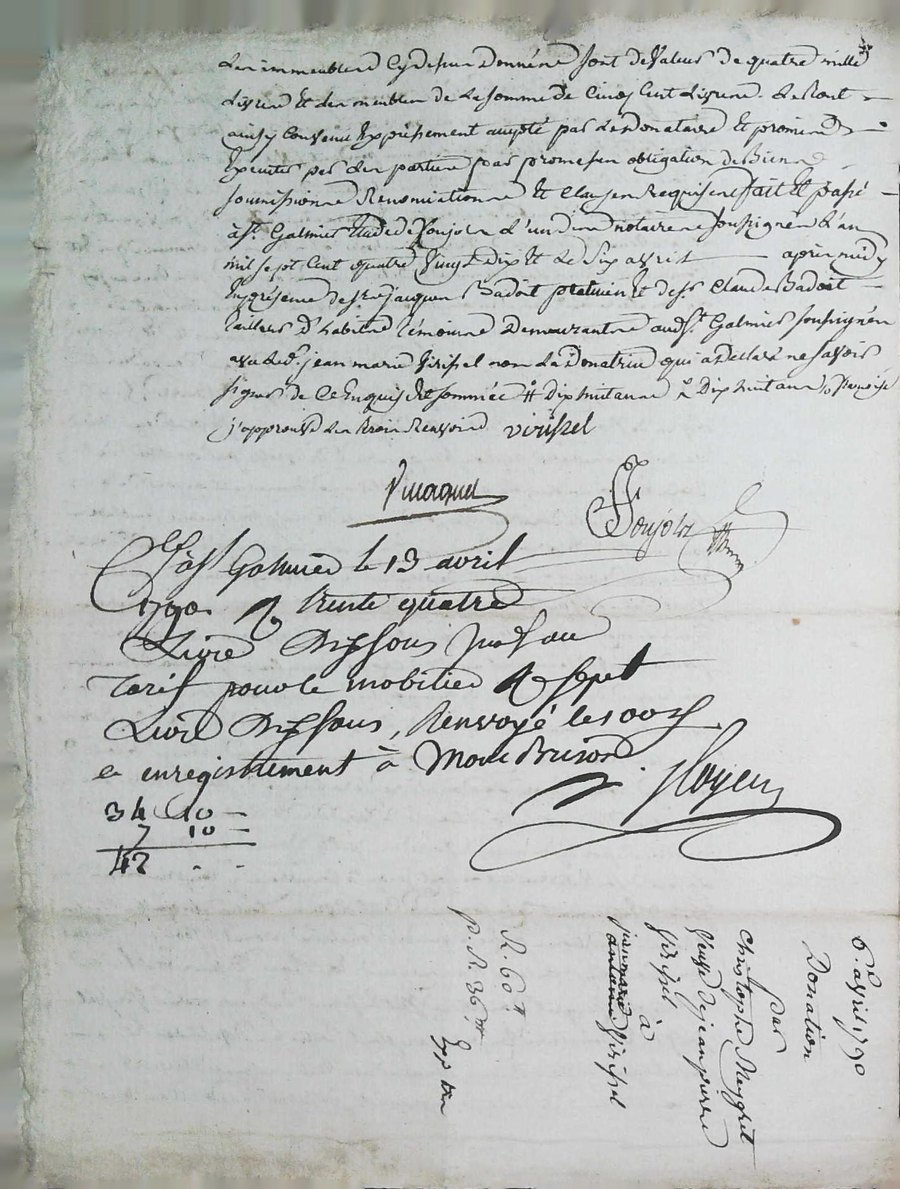 Les immeubles cy dessus donnés sont de valeur de quatre mille
livres et des meubles de la somme de cinq cent livres. De tout
ainsy convenu expressement accepté par le donataire et promis
executer par les parties par promesses obligation de Biens
soumissions Renonciations et clauses Requises fait et passé
à St. Galmier Etude de Ponjols l'un des notaires soussignés l'an
mil sept cent quatre vingt dix et le six avril après midy
En présence de sr. jacques Badoit platrier et de sr. Claude Badoit
tailleur d'habits témoins demeurants audt. St. Galmier soussignés
avec led. jean marie virissel non la Donatrice qui a déclaré ne savoir
signer de ce Enquise et sommée # Dix huit ans Dix huit ans
j'approuve les trois Renvois virissel
Ponjols
C. à St Galmier le 13 avril
1790. R. trente quatre
Livre Dix sous
Tarif pour le mobilier R sept
Livre Dix sous, Renvoyé les 100e
en enregistrement à Mont Brison
34 10 —
7 10 —
42 - -
6. avril 1790
Donation
par
Christophe Meygret
veuve de jean pierre
virissel
à
jean marie
antoine virissel
R. 60 #
p. R. 36 #
Exp